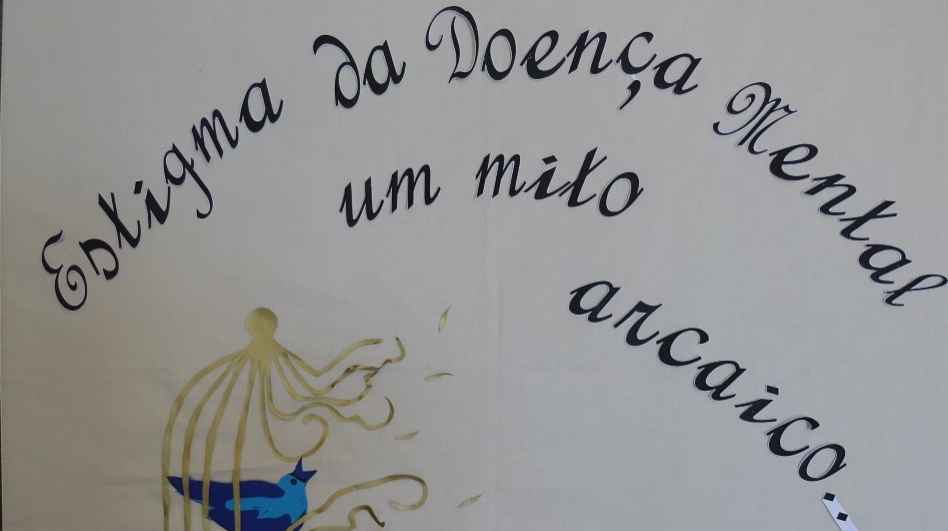 Estigma da Doença Mental
um mito
arcaico...